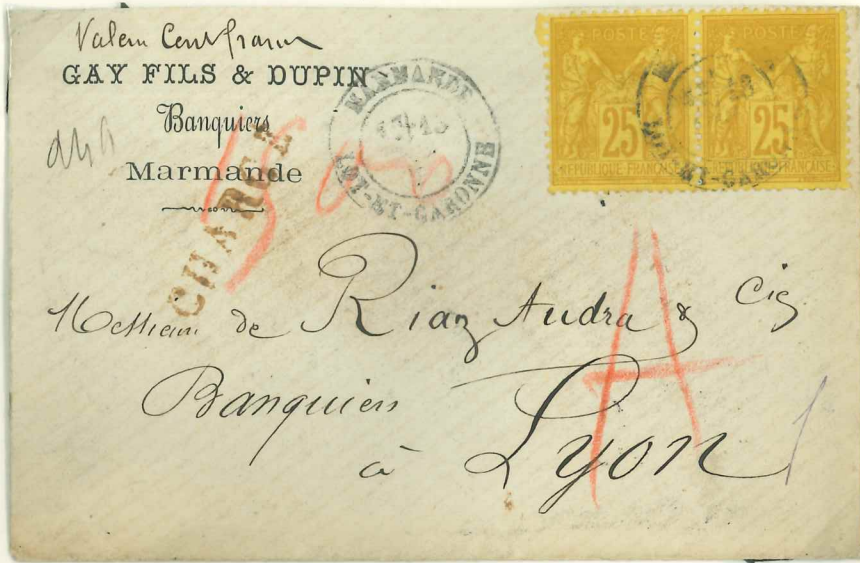 Valeur Cent francs
GAY FILS & DUPIN
Banquiers
Marmande
CHARGÉ
MARMANDE
LOT-ET-GARONNE
POSTE
25
REPUBLIQUE FRANÇAISE
POSTE
25
REPUBLIQUE FRANÇAISE
LOT-ET-GARONNE
A
Messieurs de Riaz Audra & Cie
Banquiers
à Lyon